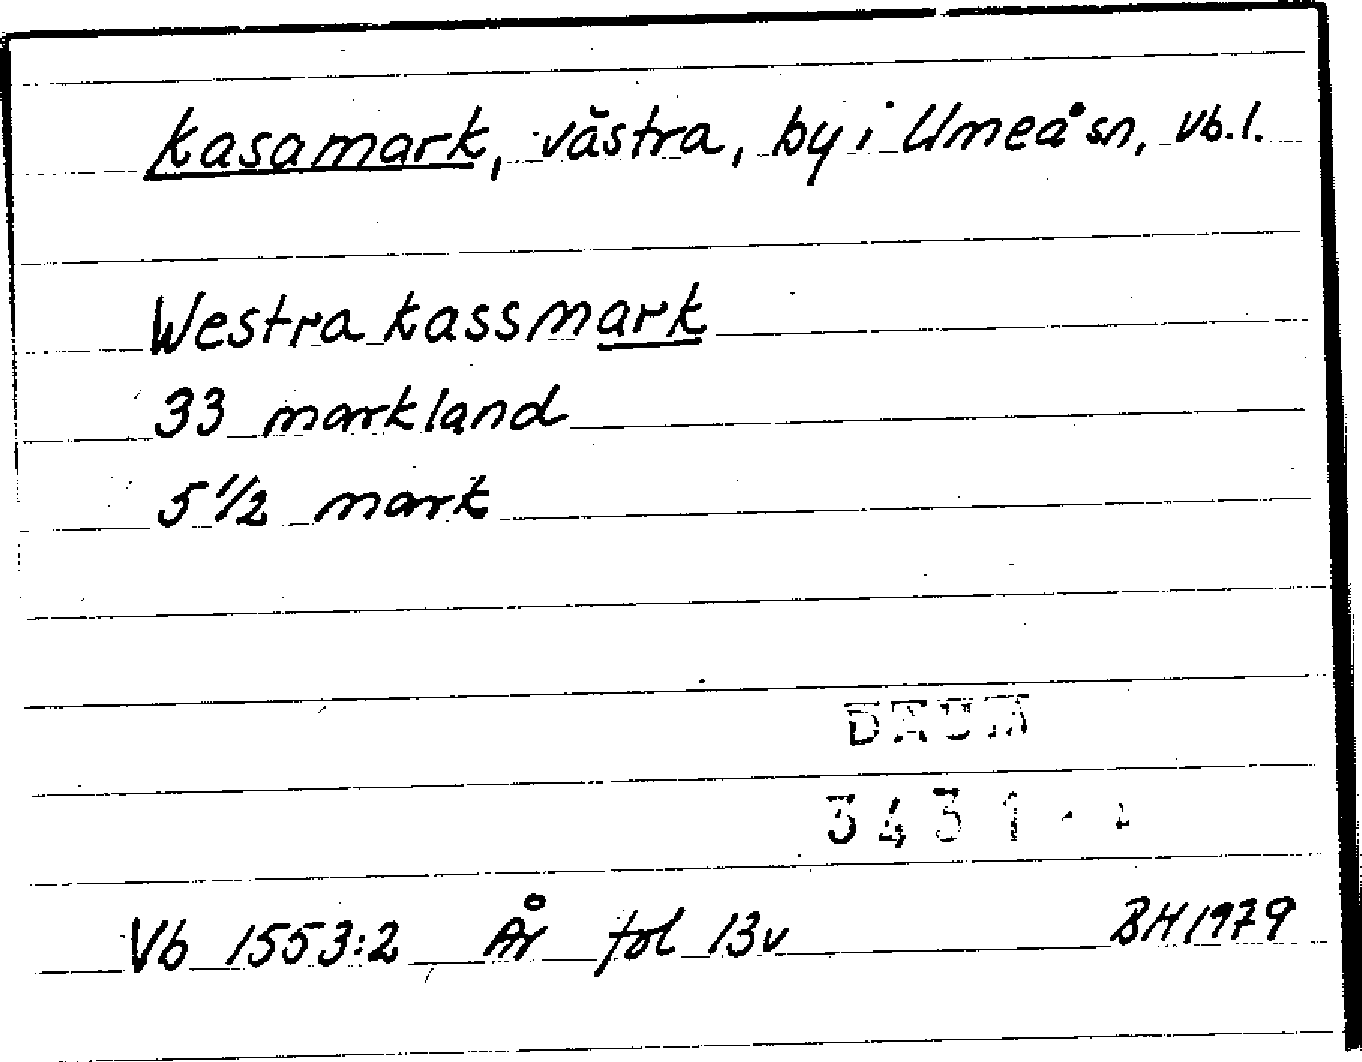 Kasamark, västra, by i Umeå sn, Vb.l.
Westra kassmark
33 markland
5 1/2 mark
DAUM
3431
Vb 1553:2 År fol 13v BH 1979